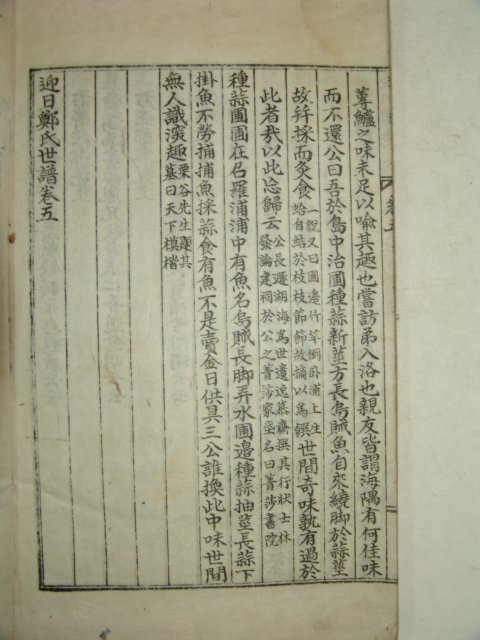 蓴鱸之味未足以喩其趣也嘗訪弟入洛也親友皆謂海隅有何佳味
而不還公曰吾於島中治圃種蒜新莖方長烏賊魚自來繞脚於蒜莖
故幷採而灸食一說又曰圃邊竹竿倒臥浦上生
蛤自結於枝枝節節故摘以爲饌世間奇味孰有過於
此者我以此忘歸云公長遯湖海爲世遺逸慕齋撰其行狀士林
發論建祠於公之菁莎家塾名曰菁莎書院
種蒜圃圃在召羅浦浦中有魚名烏賊長脚弄水圃邊種蒜抽莖長蒜下
掛魚不勞捕捕魚採蒜食有魚不是賣金日供具三公誰換此中味世間
無人識深趣栗谷先生題其
墓曰天下模楷
迎日鄭氏世譜卷五